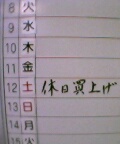 8 火
9 水
10 木
11 金
12 土 休日買上げ
13 日
14 月
15 火